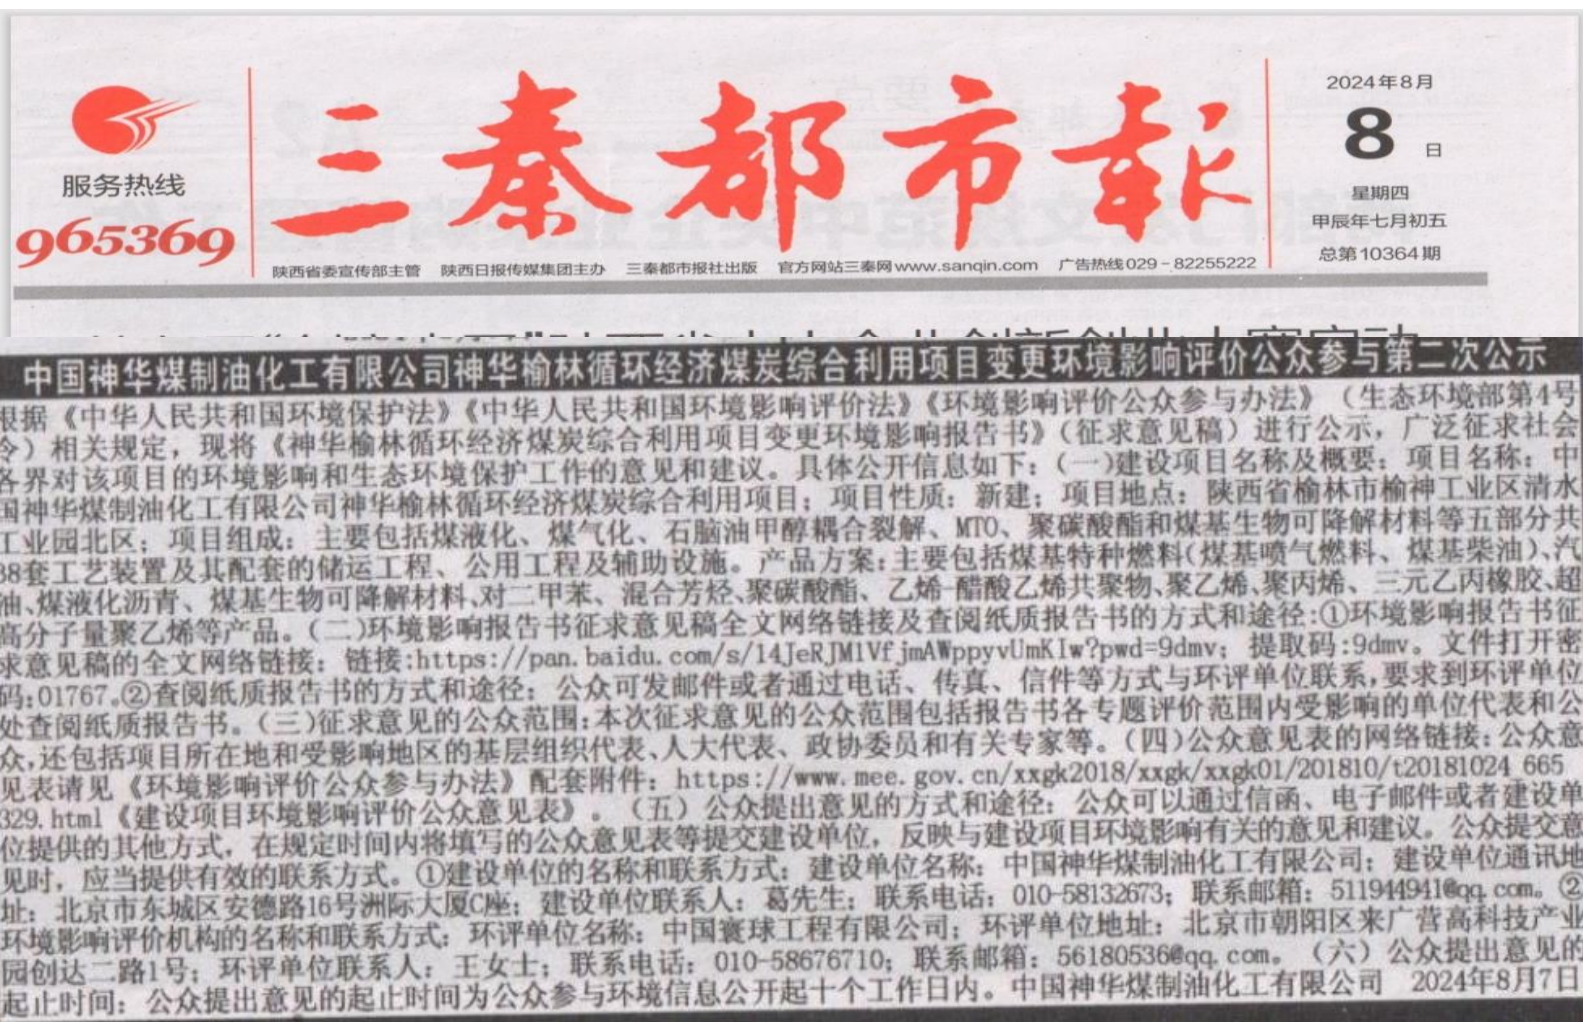 服务热线
965369
三秦都市报
陕西省委宣传部主管 陕西日报传媒集团主办 三秦都市报社出版 官方网站三秦网www.sanqin.com 广告热线029-82255222
2024年8月
8日
星期四
甲辰年七月初五
总第10364期
中国神华煤制油化工有限公司神华榆林循环经济煤炭综合利用项目变更环境影响评价公众参与第二次公示
根据《中华人民共和国环境保护法》《中华人民共和国环境影响评价法》《环境影响评价公众参与办法》（生态环境部第4号
令）相关规定，现将《神华榆林循环经济煤炭综合利用项目变更环境影响报告书》（征求意见稿）进行公示，广泛征求社会
各界对该项目的环境影响和生态环境保护工作的意见和建议。具体公开信息如下：（一）建设项目名称及概要：项目名称：中
国神华煤制油化工有限公司神华榆林循环经济煤炭综合利用项目；项目性质：新建；项目地点：陕西省榆林市榆神工业区清水
工业园北区；项目组成：主要包括煤液化、煤气化、石脑油甲醇耦合裂解、MTO、聚碳酸酯和煤基生物可降解材料等五部分共
38套工艺装置及其配套的储运工程、公用工程及辅助设施。产品方案：主要包括煤基特种燃料（煤基喷气燃料、煤基柴油）、汽
油、煤液化沥青、煤基生物可降解材料、对二甲苯、混合芳烃、聚碳酸酯、乙烯-醋酸乙烯共聚物、聚乙烯、聚丙烯、三元乙丙橡胶、超
高分子量聚乙烯等产品。（二）环境影响报告书征求意见稿全文网络链接及查阅纸质报告书的方式和途径：①环境影响报告书征
求意见稿的全文网络链接：链接:https://pan.baidu.com/s/14JeRJM1VfjmAWppyvUmKIw?pwd=9dmv；提取码:9dmv。文件打开密
码:01767。②查阅纸质报告书的方式和途径：公众可发邮件或者通过电话、传真、信件等方式与环评单位联系，要求到环评单位
处查阅纸质报告书。（三）征求意见的公众范围：本次征求意见的公众范围包括报告书各专题评价范围内受影响的单位代表和公
众，还包括项目所在地和受影响地区的基层组织代表、人大代表、政协委员和有关专家等。（四）公众意见表的网络链接：公众意
见表请见《环境影响评价公众参与办法》配套附件：https://www.mee.gov.cn/xxgk2018/xxgk/xxgk01/201810/t20181024_665
329.html《建设项目环境影响评价公众意见表》。（五）公众提出意见的方式和途径：公众可以通过信函、电子邮件或者建设单
位提供的其他方式，在规定时间内将填写的公众意见表等提交建设单位，反映与建设项目环境影响有关的意见和建议。公众提交意
见时，应当提供有效的联系方式。①建设单位的名称和联系方式：建设单位名称：中国神华煤制油化工有限公司；建设单位通讯地
址：北京市东城区安德路16号洲际大厦C座；建设单位联系人：葛先生；联系电话：010-58132673；联系邮箱：511944941@qq.com。②
环境影响评价机构的名称和联系方式：环评单位名称：中国寰球工程有限公司；环评单位地址：北京市朝阳区来广营高科技产业
园创达二路1号；环评单位联系人：王女士；联系电话：010-58676710；联系邮箱：56180536@qq.com。（六）公众提出意见的
起止时间：公众提出意见的起止时间为公众参与环境信息公开起十个工作日内。中国神华煤制油化工有限公司 2024年8月7日